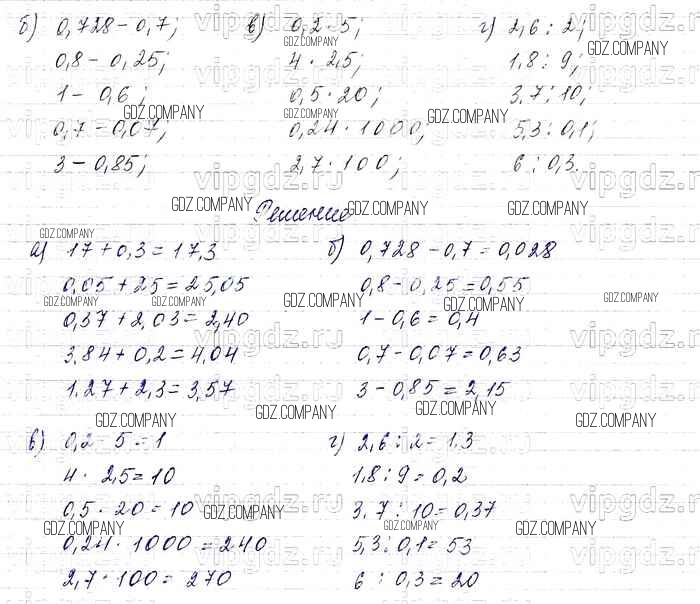 б) 0,728 - 0,7; в) 0,2 · 5; г) 2,6 : 2;
0,8 - 0,25; 4 · 2,5; 1,8 : 9;
1 - 0,6; 0,5 · 20; 3,7 : 10;
0,7 - 0,07; 0,24 · 1000; 5,3 : 0,1;
3 - 0,85; 2,7 · 100; 6 : 0,3.
Решение
а) 17 + 0,3 = 17,3
0,05 + 25 = 25,05
0,37 + 2,03 = 2,40
3,84 + 0,2 = 4,04
1,27 + 2,3 = 3,57
б) 0,728 - 0,7 = 0,028
0,8 - 0,25 = 0,55
1 - 0,6 = 0,4
0,7 - 0,07 = 0,63
3 - 0,85 = 2,15
в) 0,2 · 5 = 1
4 · 2,5 = 10
0,5 · 20 = 10
0,24 · 1000 = 240
2,7 · 100 = 270
г) 2,6 : 2 = 1,3
1,8 : 9 = 0,2
3,7 : 10 = 0,37
5,3 : 0,1 = 53
6 : 0,3 = 20
GDZ.COMPANY
vipgdz.ru